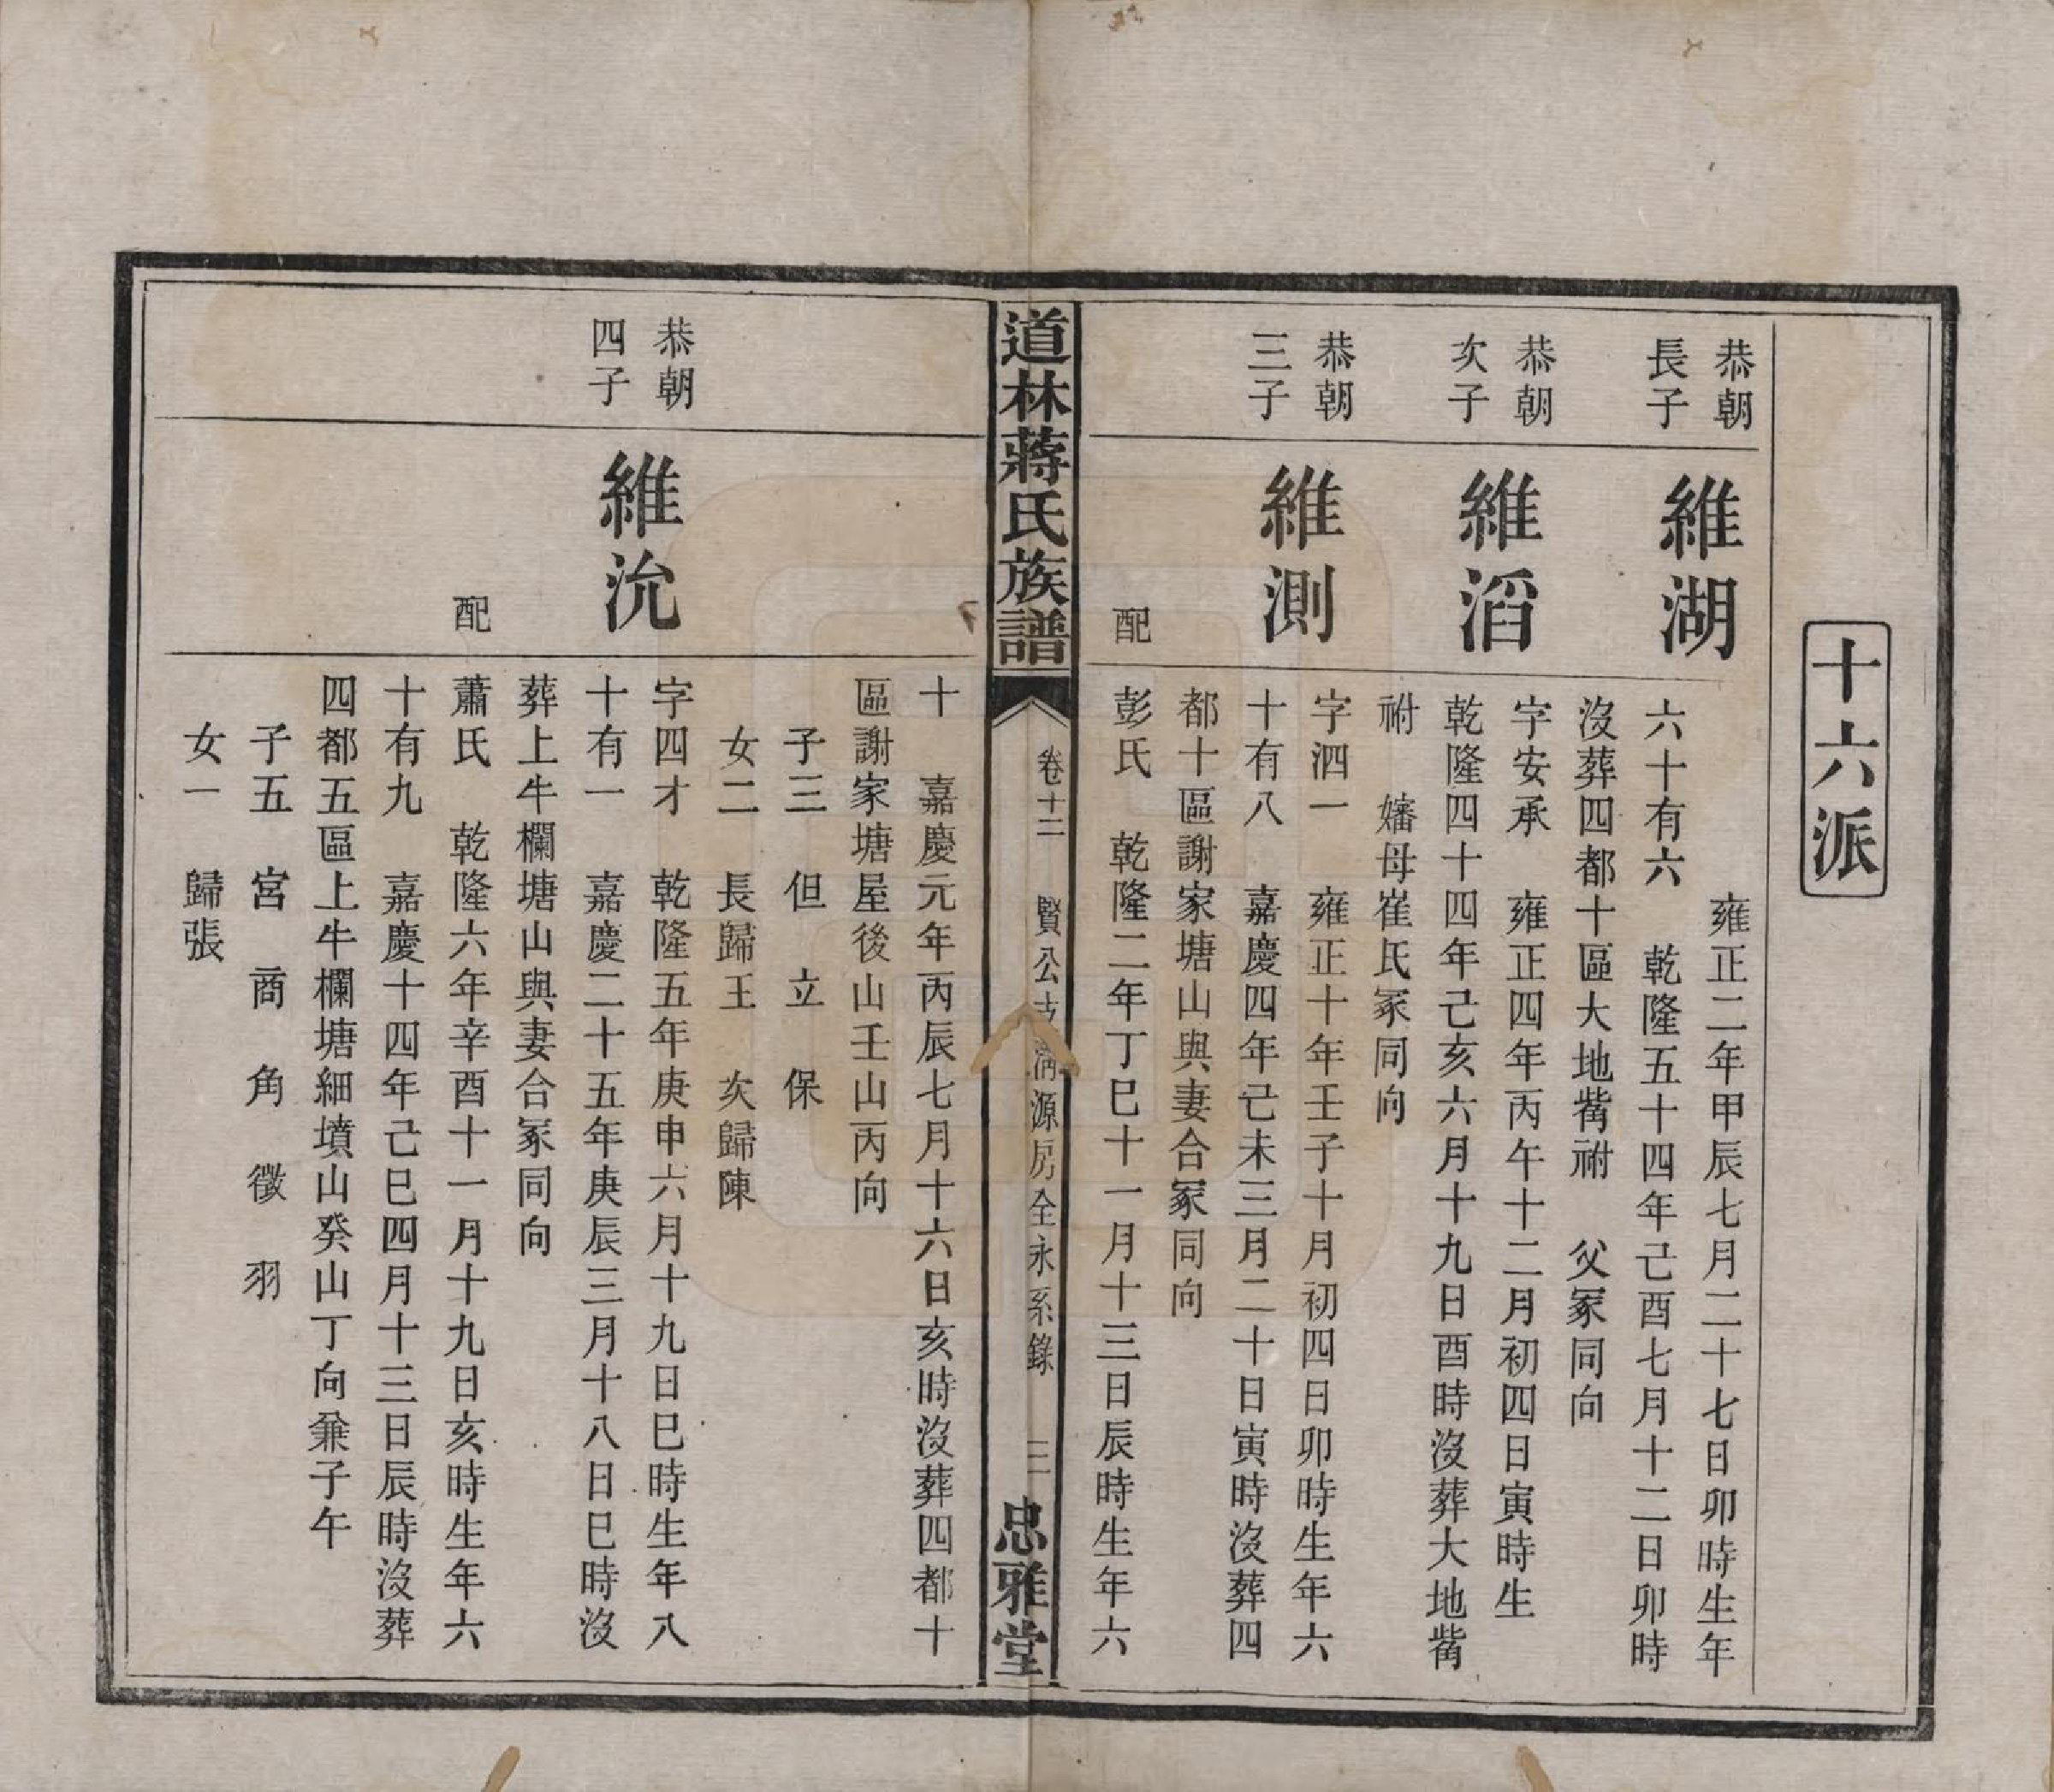 十六派
恭朝
長子
維湖
雍正二年甲辰七月二十七日卯時生年
六十有六　乾隆五十四年己酉七月十二日卯時
沒葬四都十區大地觜祔　父冢同向
恭朝
次子
維滔
字安承　雍正四年丙午十二月初四日寅時生
乾隆四十四年己亥六月十九日酉時沒葬大地觜
祔　嬸母崔氏冢同向
恭朝
三子
維測
字泗一　雍正十年壬子十月初四日卯時生年六
十有八　嘉慶四年己未三月二十日寅時沒葬四
都十區謝家塘山與妻合冢同向
配
彭氏　乾隆二年丁巳十一月十三日辰時生年六
道林蔣氏族譜
卷十二　賢公支清源房全永系錄　三
忠雅堂
十　嘉慶元年丙辰七月十六日亥時沒葬四都十
區謝家塘屋後山壬山丙向
子三　但　立　保
女二　長歸王　次歸陳
恭朝
四子
維沇
字四才　乾隆五年庚申六月十九日巳時生年八
十有一　嘉慶二十五年庚辰三月十八日巳時沒
葬上牛欄塘山與妻合冢同向
配
蕭氏　乾隆六年辛酉十一月十九日亥時生年六
十有九　嘉慶十四年己巳四月十三日辰時沒葬
四都五區上牛欄塘細墳山癸山丁向兼子午
子五　宮　商　角　徵　羽
女一　歸張